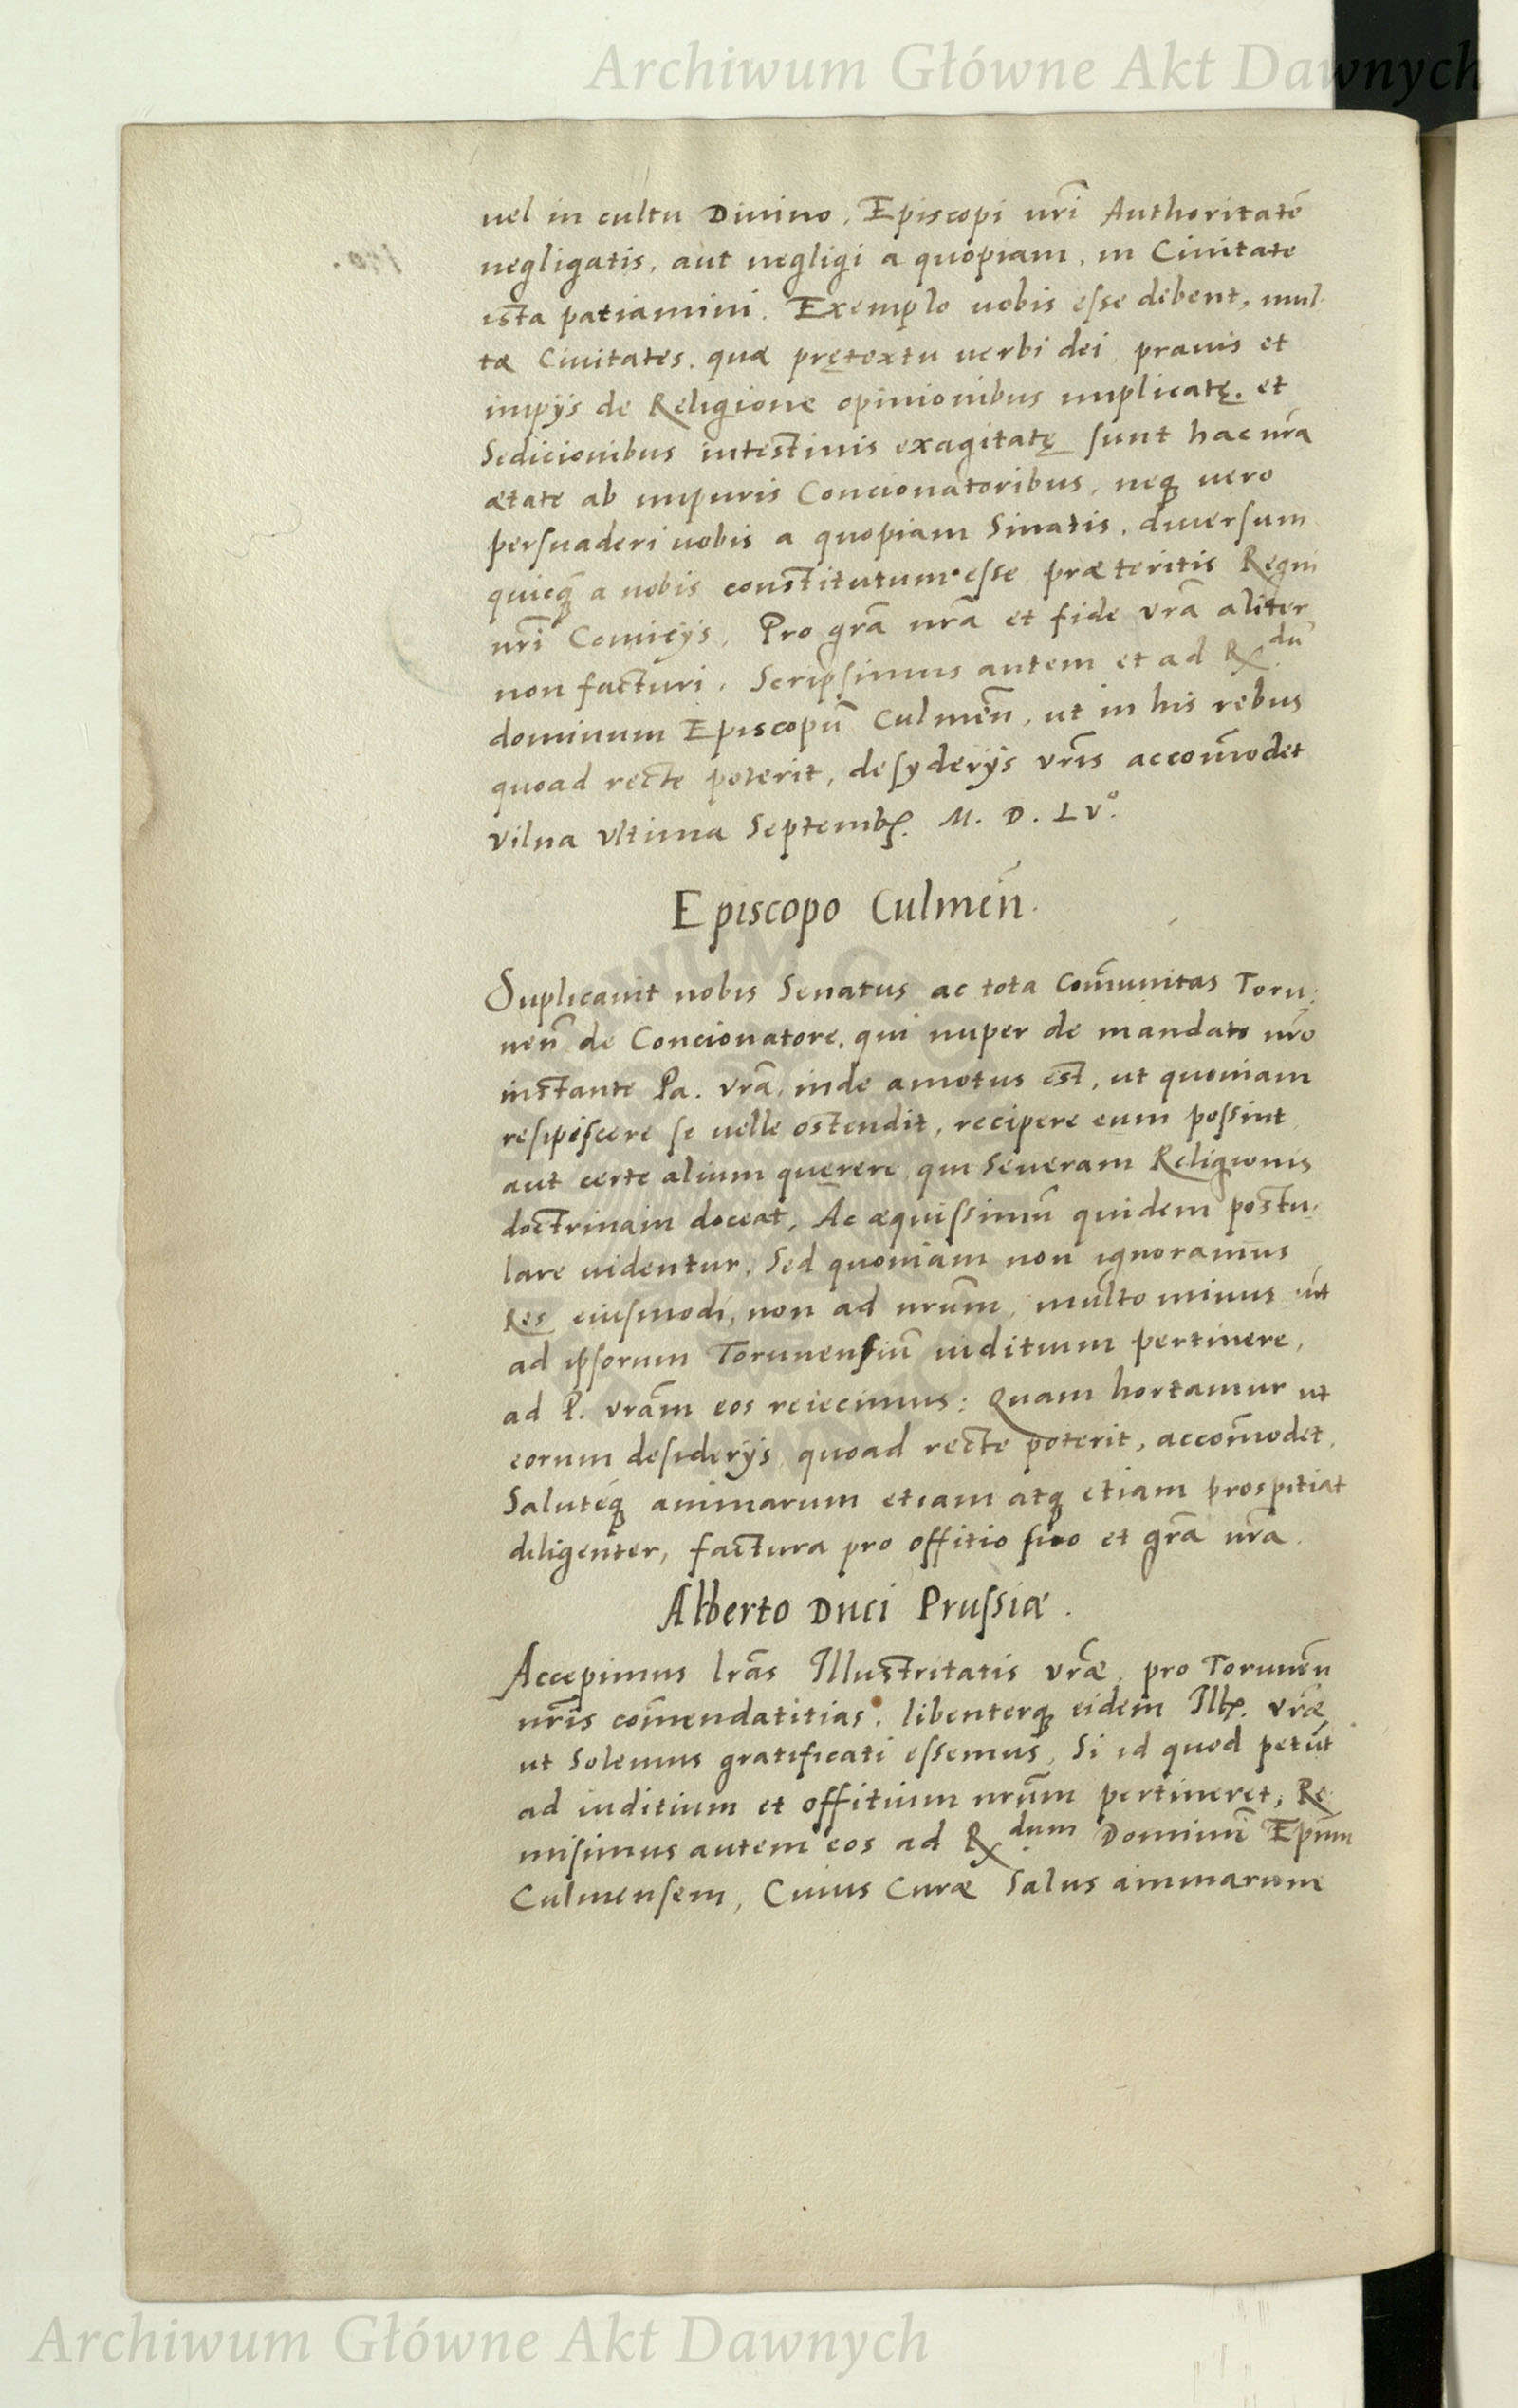 Archiwum Główne Akt Dawnych
vel in cultu Diuino, Episcopi nr̃i Authoritatẽ
negligatis, aut negligi a quopiam, in Ciuitate
ista patiamini. Exemplo uobis esse debent, mul-
tæ Ciuitates, quæ prętextu verbi dei, prauis et
impijs de Religione opinionibus implicatę, et
Sedicionibus intestinis exagitatę sunt hac nr̃a
ætate ab impuris Concionatoribus, neq; uero
persuaderi uobis a quopiam Sinatis, diuersum
quicq̃ a nobis constitutum esse præteritis Regni
nr̃i Comicijs, Pro gr̃a nr̃a et fide vr̃a aliter
non facturi. Scripsimus autem et ad R.dũ
dominum Episcopũ Culmeñ, ut in his rebus
quoad recte poterit, desyderijs vr̃is accom̃odet
Vilna Vltima Septemb. M. D. LVº.
Episcopo Culmeñ.
Suplicauit nobis Senatus ac tota Com̃unitas Toru:
neñ de Concionatore, qui nuper de mandato nr̃o
instante Pa. vr̃a, inde amotus est, ut quoniam
resipiscere se uelle ostendit, recipere eum possint
aut certe alium querere, qui Seueram Religionis
doctrinam doceat, Ac æquissimũ quidem postu:
lare uidentur, Sed quoniam non ignoramus
Res eiusmodi, non ad nrũm, multo minus
ad ipsorum Torunensiũ iuditium pertinere,
ad P. vrãm eos reiecimus: Quam hortamur ut
eorum desiderijs quoad recte poterit, accom̃odet,
Salutẽq; animarum etiam atq; etiam prospitiat
diligenter, factura pro offitio suo et gr̃a nr̃a.
Alberto Duci Prussiæ.
Accepimus lr̃as Illustritatis vr̃æ, pro Toruneñ
nr̃is com̃endatitias, libenterq; eidem Ill. vr̃æ
ut Solemus gratificati essemus, Si id quod petũt
ad iuditium et offitium nrũm pertineret, Re
misimus autem eos ad R.dum Dominũ Ep̃um
Culmensem, Cuius Curæ Salus animarum
Archiwum Główne Akt Dawnych